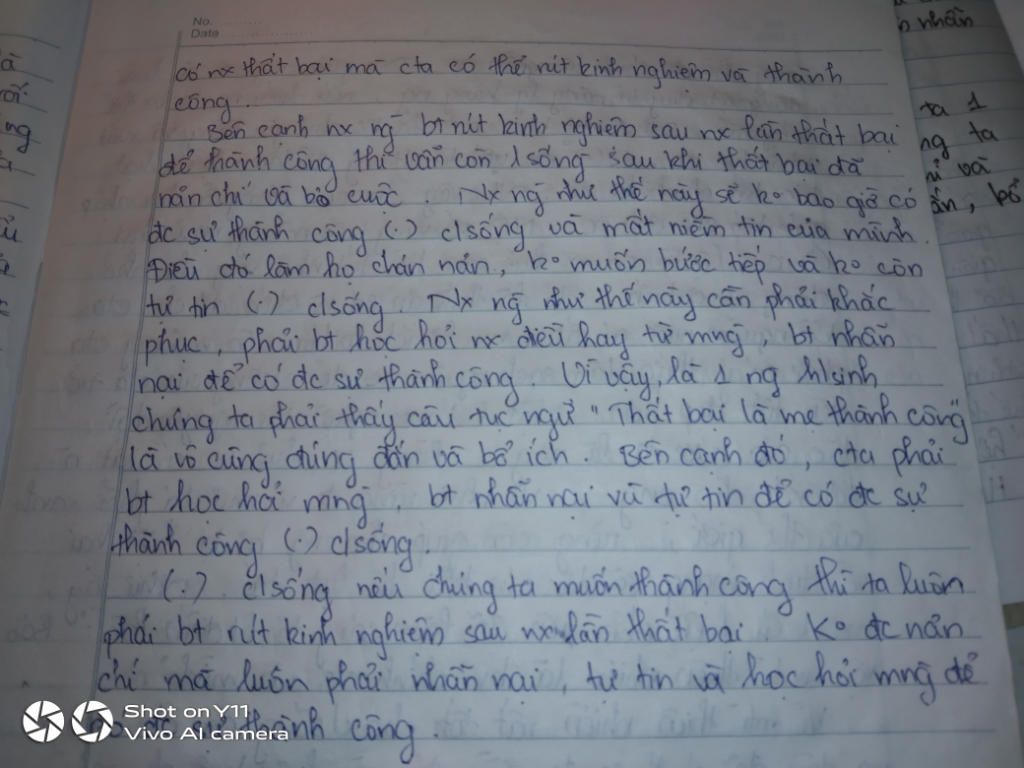 No.
Date
có nx thất bại mà cta có thể rút kinh nghiệm và thành
công.
Bên cạnh nx ng bt rút kinh nghiệm sau nx lần thất bại
để thành công thì vẫn còn lsống sau khi thất bại đã
nản chí và bỏ cuộc. Nx ng như thế này sẽ ko bao giờ có
đc sự thành công (.) c/sống và mất niềm tin của mình.
Điều đó làm họ chán nản, ko muốn bước tiếp và ko còn
tự tin (.) c/sống. Nx ng như thế này cần phải khắc
phục, phải bt học hỏi nx điều hay từ mng, bt nhẫn
nại để có đc sự thành công. Vì vậy, là 1 ng h/sinh
chúng ta phải thấy câu tục ngữ "Thất bại là mẹ thành công"
là vô cùng đúng đắn và bổ ích. Bên cạnh đó, cta phải
bt học hỏi mng, bt nhẫn nại và tự tin để có đc sự
thành công (.) c/sống.
(.) c/sống nếu chúng ta muốn thành công thì ta luôn
phải bt rút kinh nghiệm sau nx lần thất bại. Ko đc nản
chí mà luôn phải nhẫn nại, tự tin và học hỏi mng để
có đc sự thành công.
Shot on Y11
Vivo AI camera
nhân
ta 1
ng ta
và
ẩn, bổ
ng